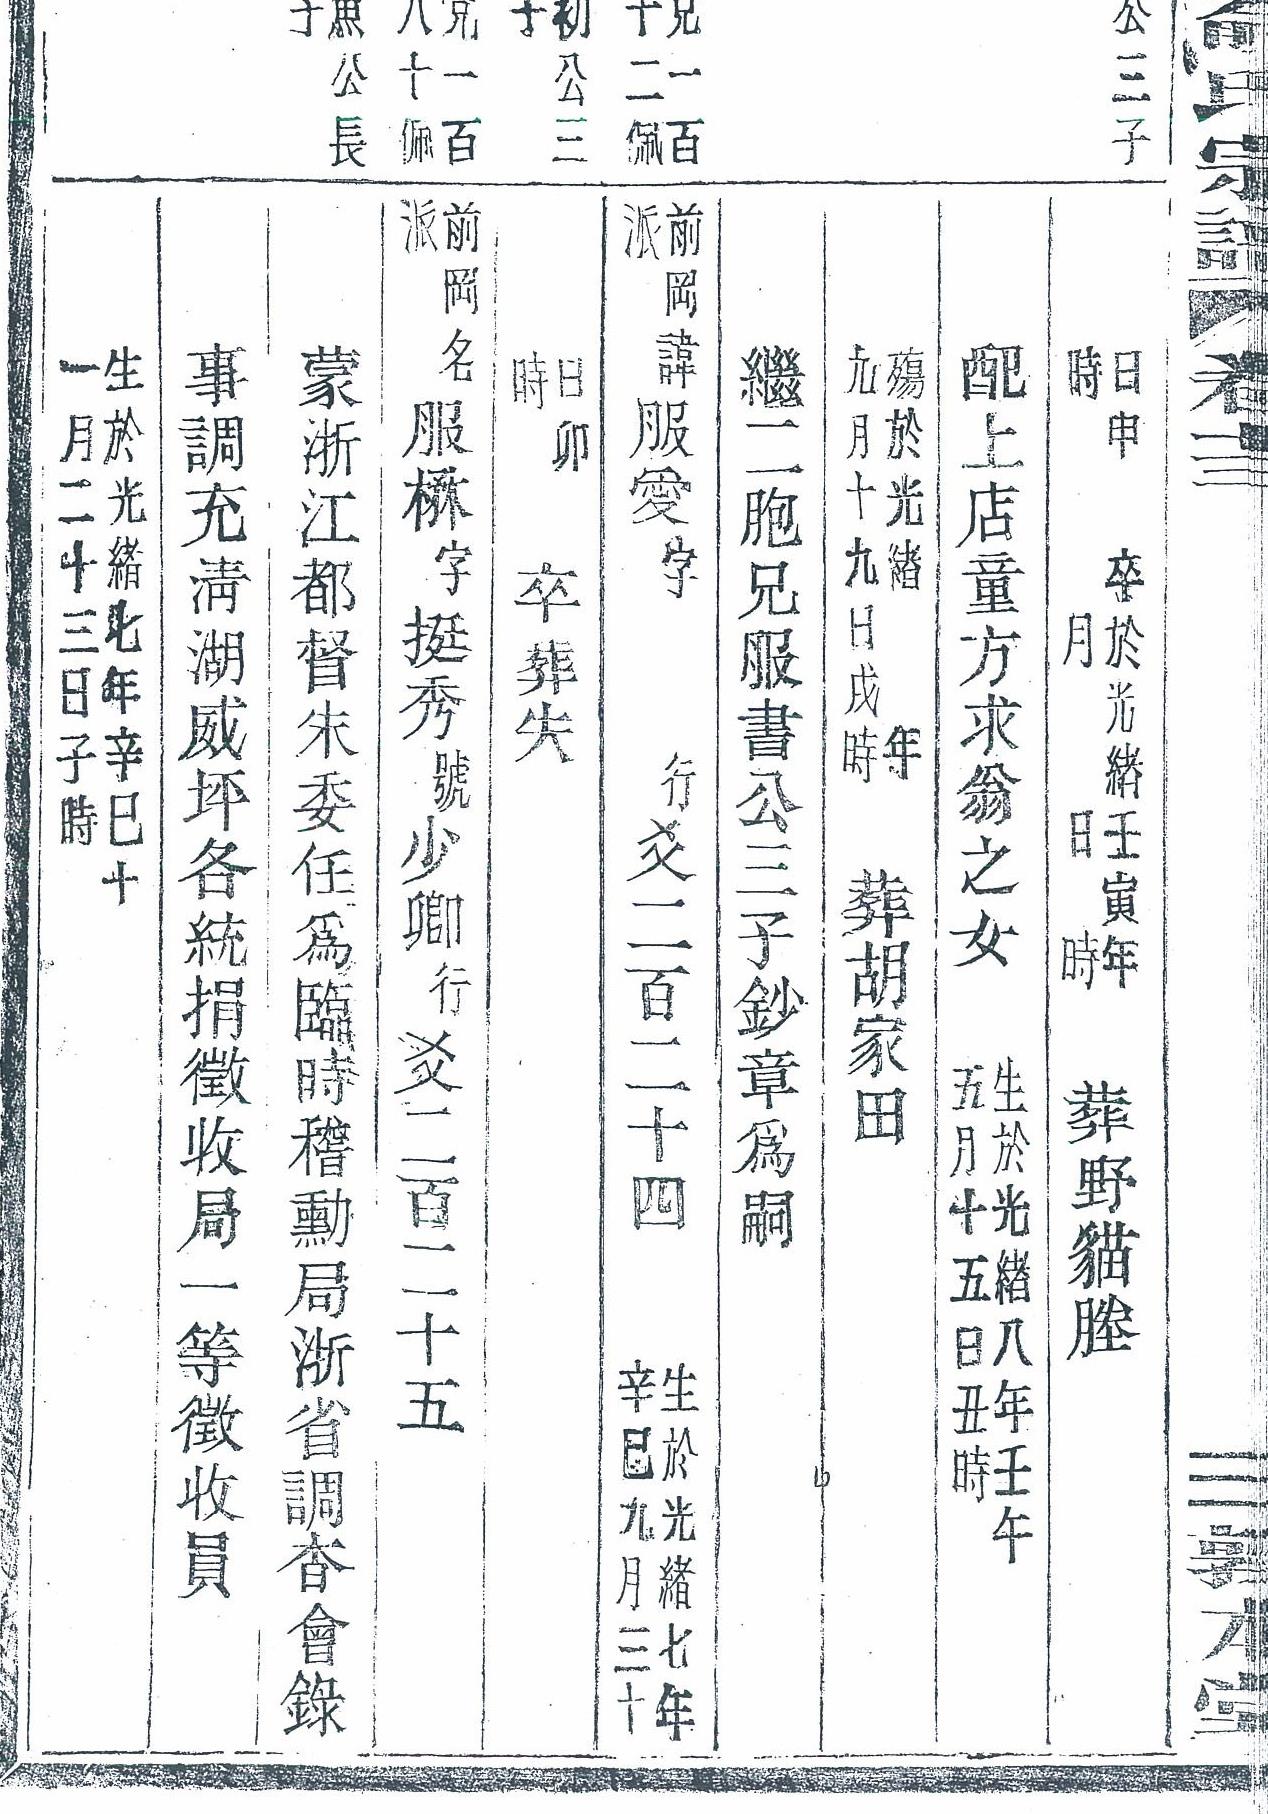 宗譜
卷三
三 敦本堂
公三子
兄一百
十二佩
初公三
子
兄一百
八十佩
魚公長
子
日申
時
卒於光緒壬寅年
月 日 時
葬野貓塍
配上店童方求翁之女
生於光緒八年壬午
五月十五日丑時
殤於光緒 年
九月十九日戌時
葬胡家田
繼二胞兄服書公三子鈔章為嗣
前岡諱服愛字 行爻二百二十四
派
生於光緒七年
辛巳九月三十
日卯
時
卒葬失
前岡名服楙字挺秀號少卿行爻二百二十五
派
蒙浙江都督朱委任為臨時稽勳局浙省調查會錄
事調充淸湖威坪各統捐徵收局一等徵收員
生於光緒七年辛巳十
一月二十三日子時